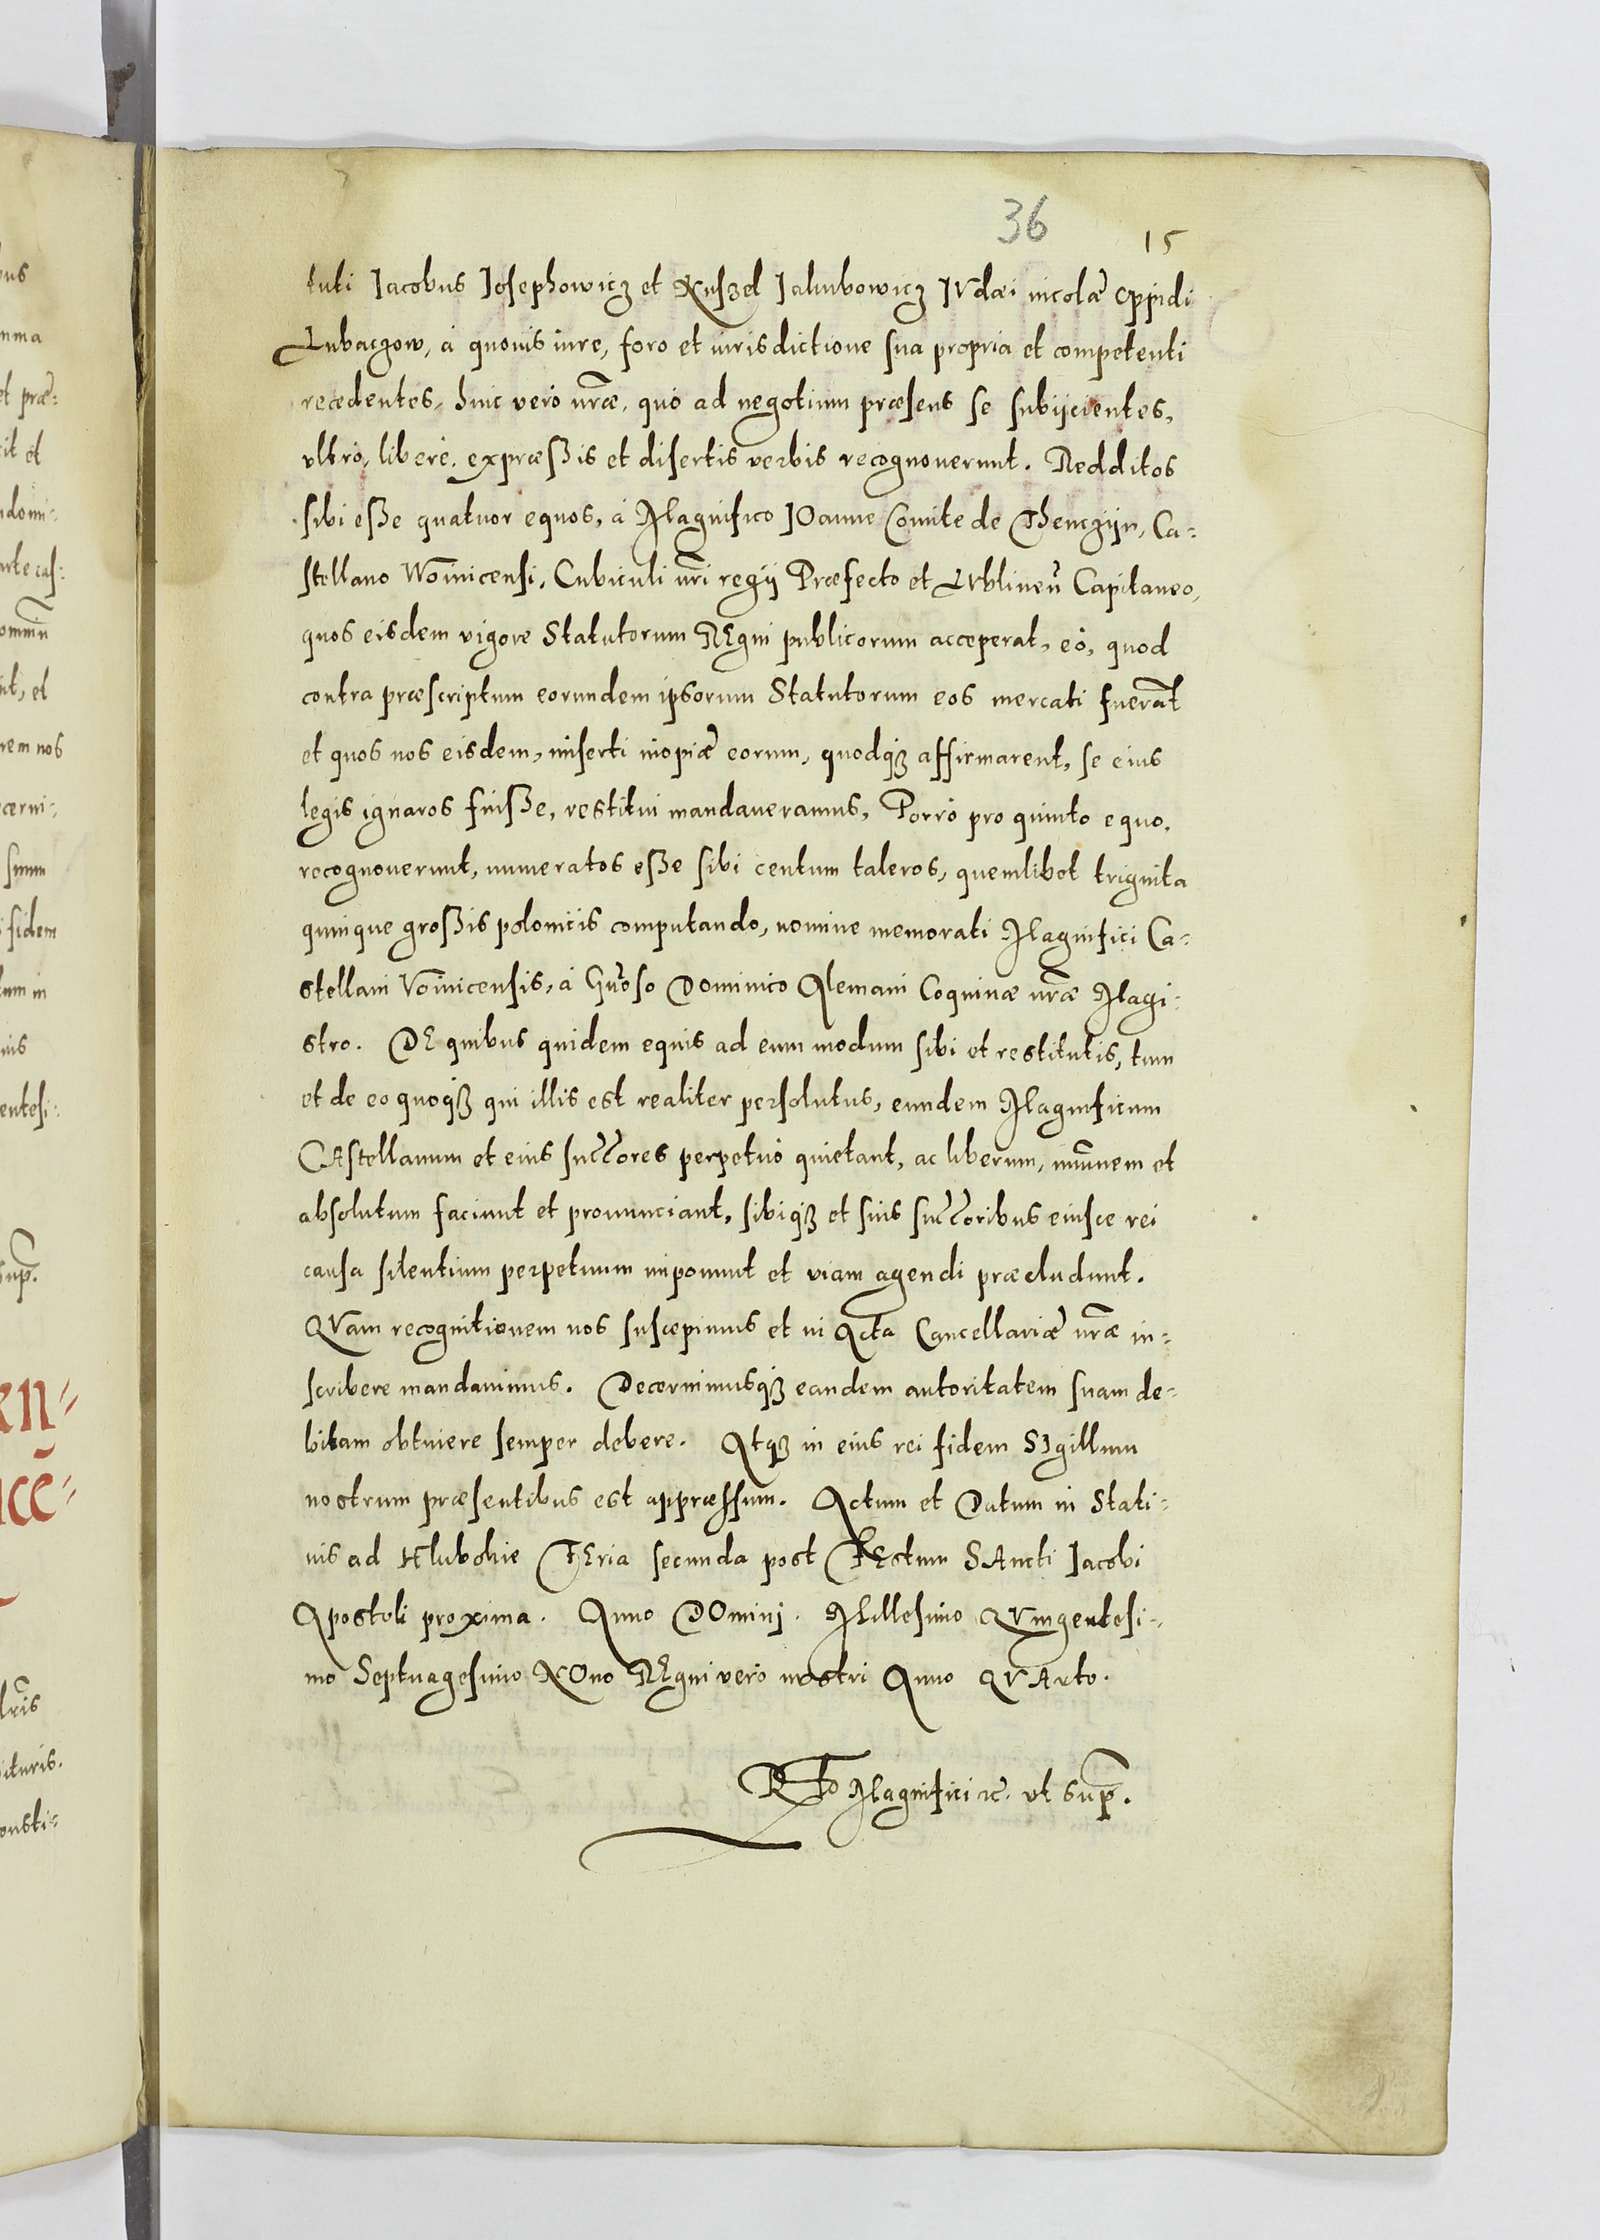 36
15
tuti Jacobus Josephowicz et Nuszel Jakubowicz JVdæi incolæ oppidi
Lubaczow, à quouis iure, foro et iurisdictione sua propria et competenti
recedentes, huic verò nr̃æ, quò ad negotium præsens se subijcientes,
vltrò, liberè, expræßis et disertis verbis recognouerunt. REdditos
sibi eße quatuor equos, à Magnifico JOanne Comite de Thenczyn, Ca-
stellano Woinicensi, Cubiculi nr̃i regij Præfecto et LVblineñ Capitaneo,
quos eisdem vigore Statutorum REgni publicorum acceperat, eò, quod
contra præscriptum eorundem ipsorum Statutorum eos mercati fuerãt
et quos nos eisdem, miserti inopiæ eorum, quodq3 affirmarent, se eius
legis ignaros fuiße, restitui mandaueramus, Porrò pro quinto equo,
recognouerunt, numeratos eße sibi centum taleros, quemlibet triginta
quinque großis polonicis computando, nomine memorati Magnifici Ca-
stellani Voinicensis, à Gñoso Dominico Alemani Coquinæ nr̃æ Magi-
stro. DE quibus quidem equis ad eum modum sibi et restitutis, tum
et de eo quoq3 qui illis est realiter persolutus, eundem Magnificum
CAstellanum et eius succ̃ores perpetuò quietant, ac liberum, imũnem et
absolutum faciunt et pronunciant, sibiq3 et suis succ̃oribus eiusce rei
causa silentium perpetuum imponunt et viam agendi præcludunt.
QVam recognitionem nos suscepimus et in Acta Cancellariæ nr̃æ in-
scribere mandauimus. Decernimusq3 eandem autoritatem suam de-
bitam obtinere semper debere. Atq3 in eius rei fidem SIgillum
nostrum præsentibus est appræssum. Actum et Datum in Stati-
uis ad Hlubokie FEria secunda post FEstum SAncti Jacobi
Apostoli proxima. Anno DOmini. Millesimo QVingentesi-
mo Septuagesimo NOno REgni verò nostri Anno QVArto.
RElo Magnifici &c. vt sup̃.